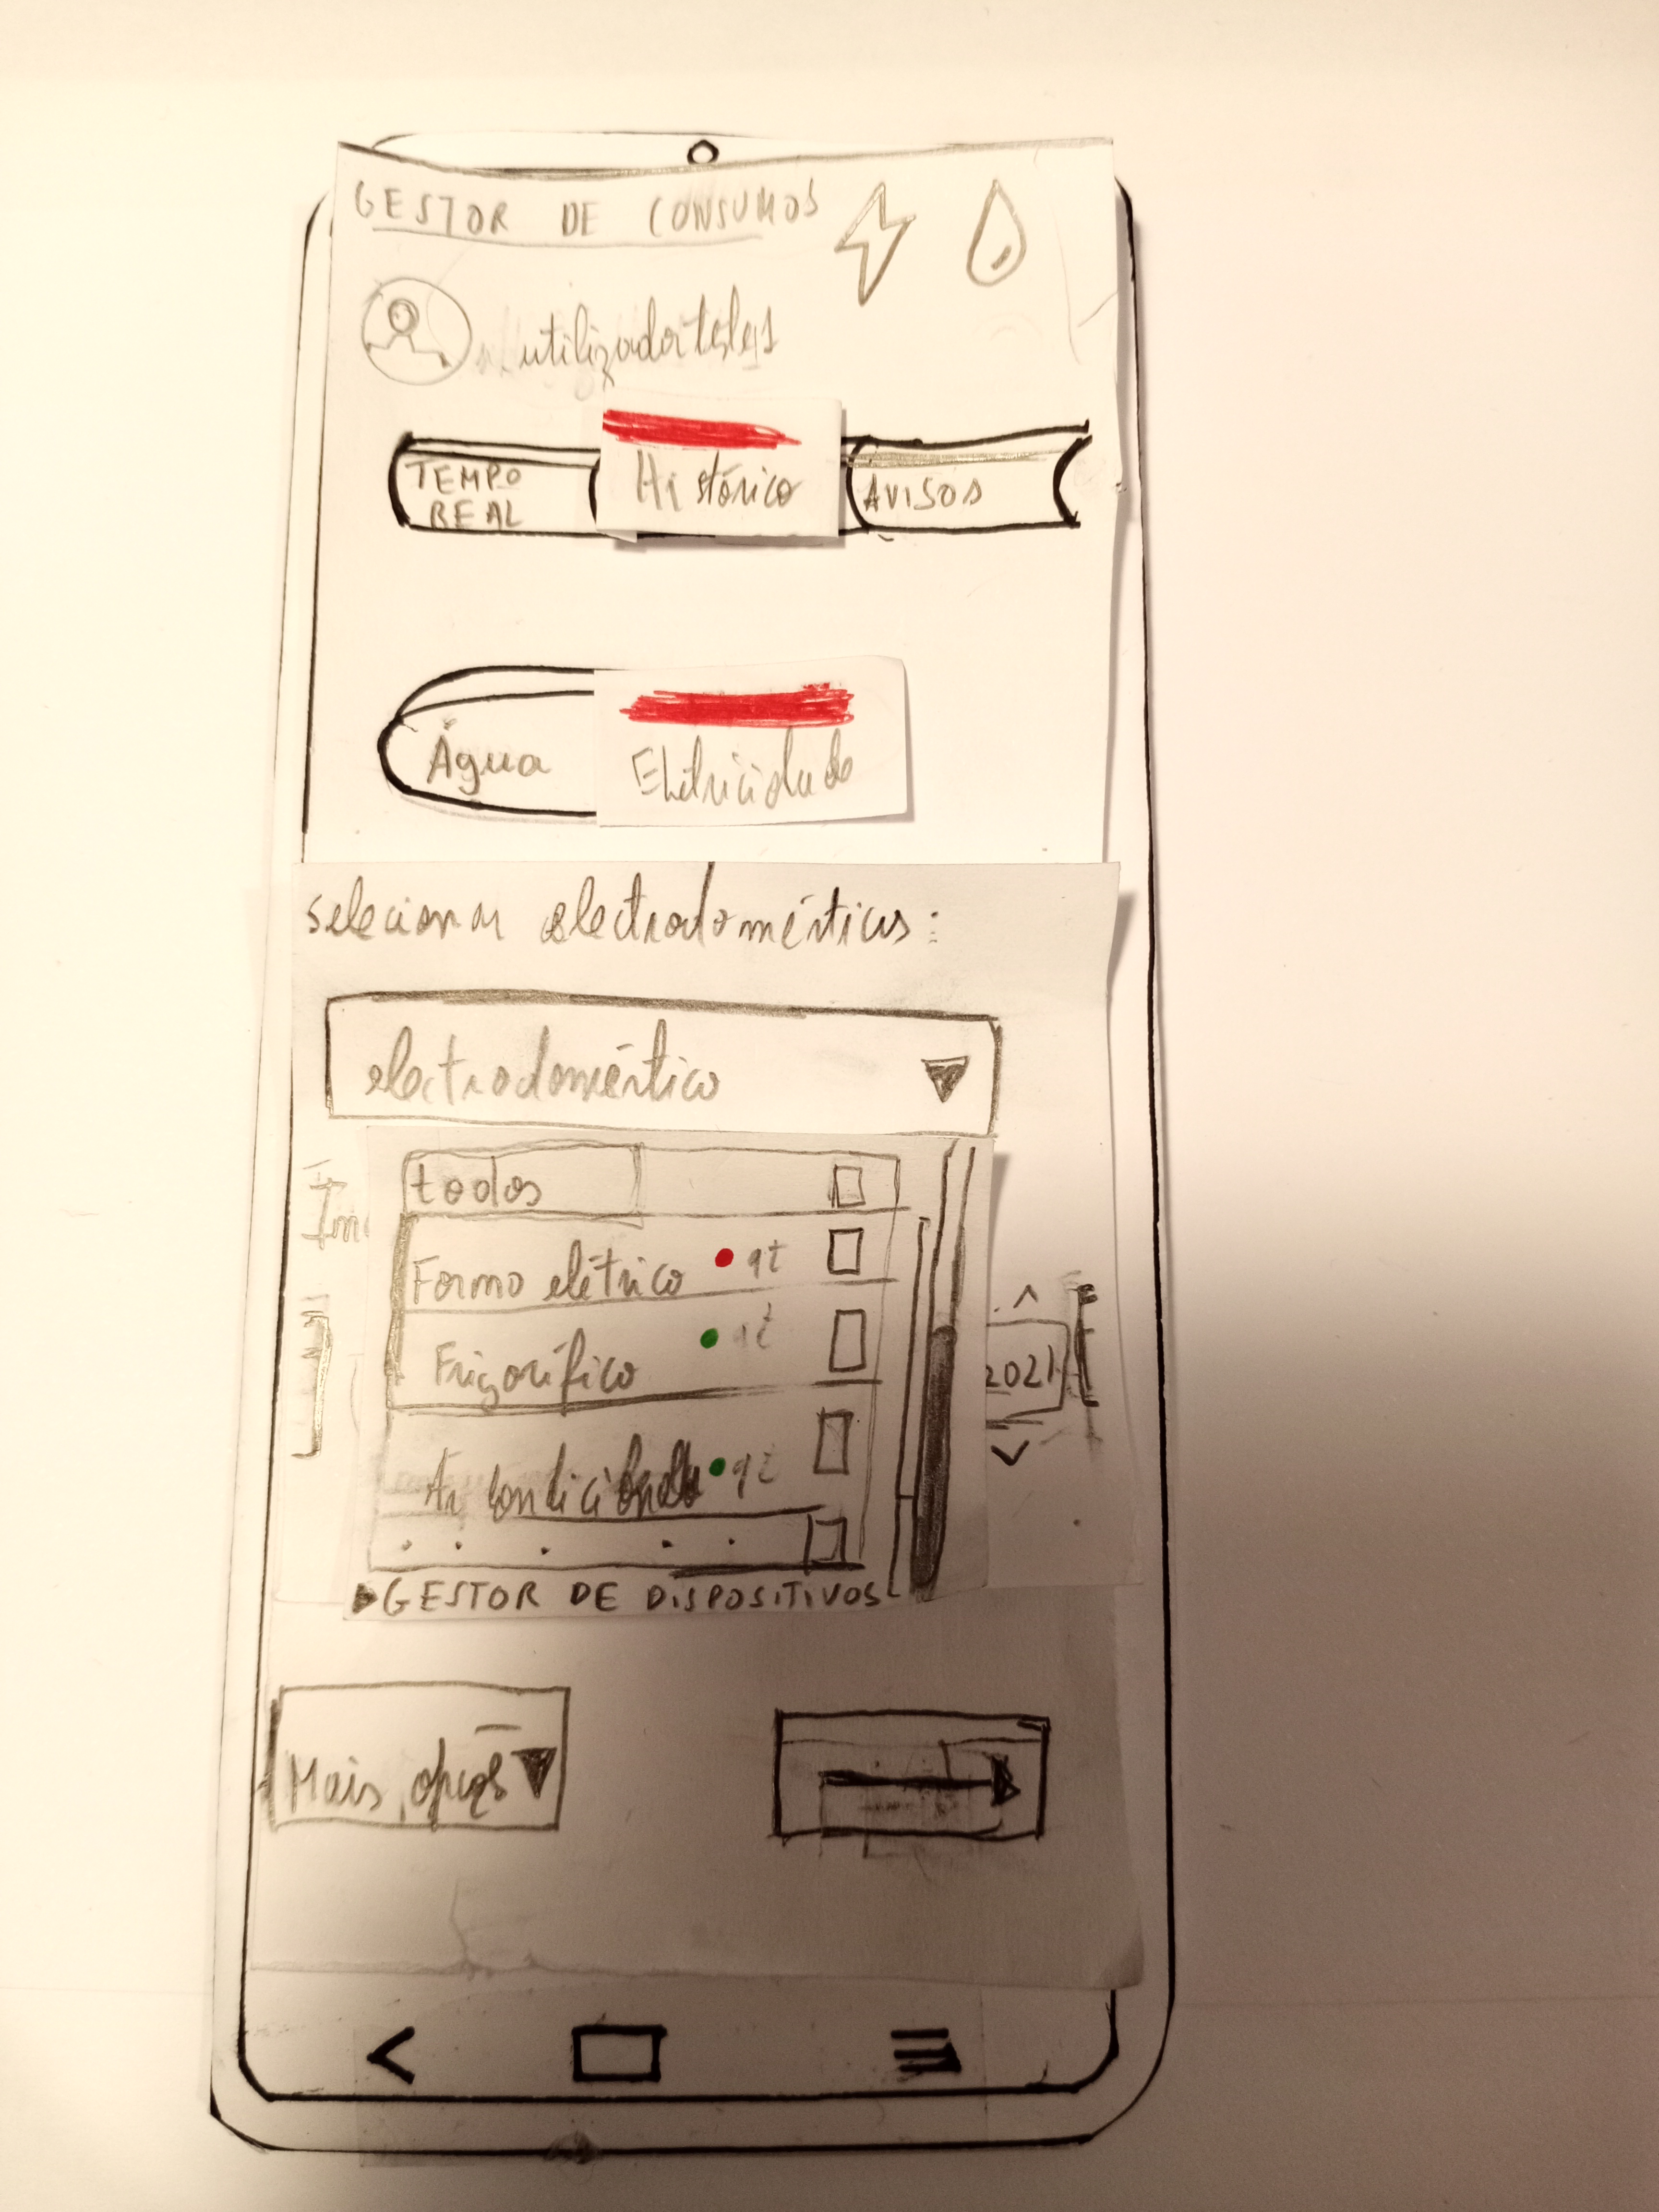 GESTOR DE CONSUMOS
utilizadorteles1
TEMPO REAL
Histórico
AVISOS
Água
Eletricidade
selecionar electrodomésticos:
electrodoméstico
todos
Forno elétrico
Frigorífico
Ar condicionado
2021
GESTOR DE DISPOSITIVOS
Mais opções